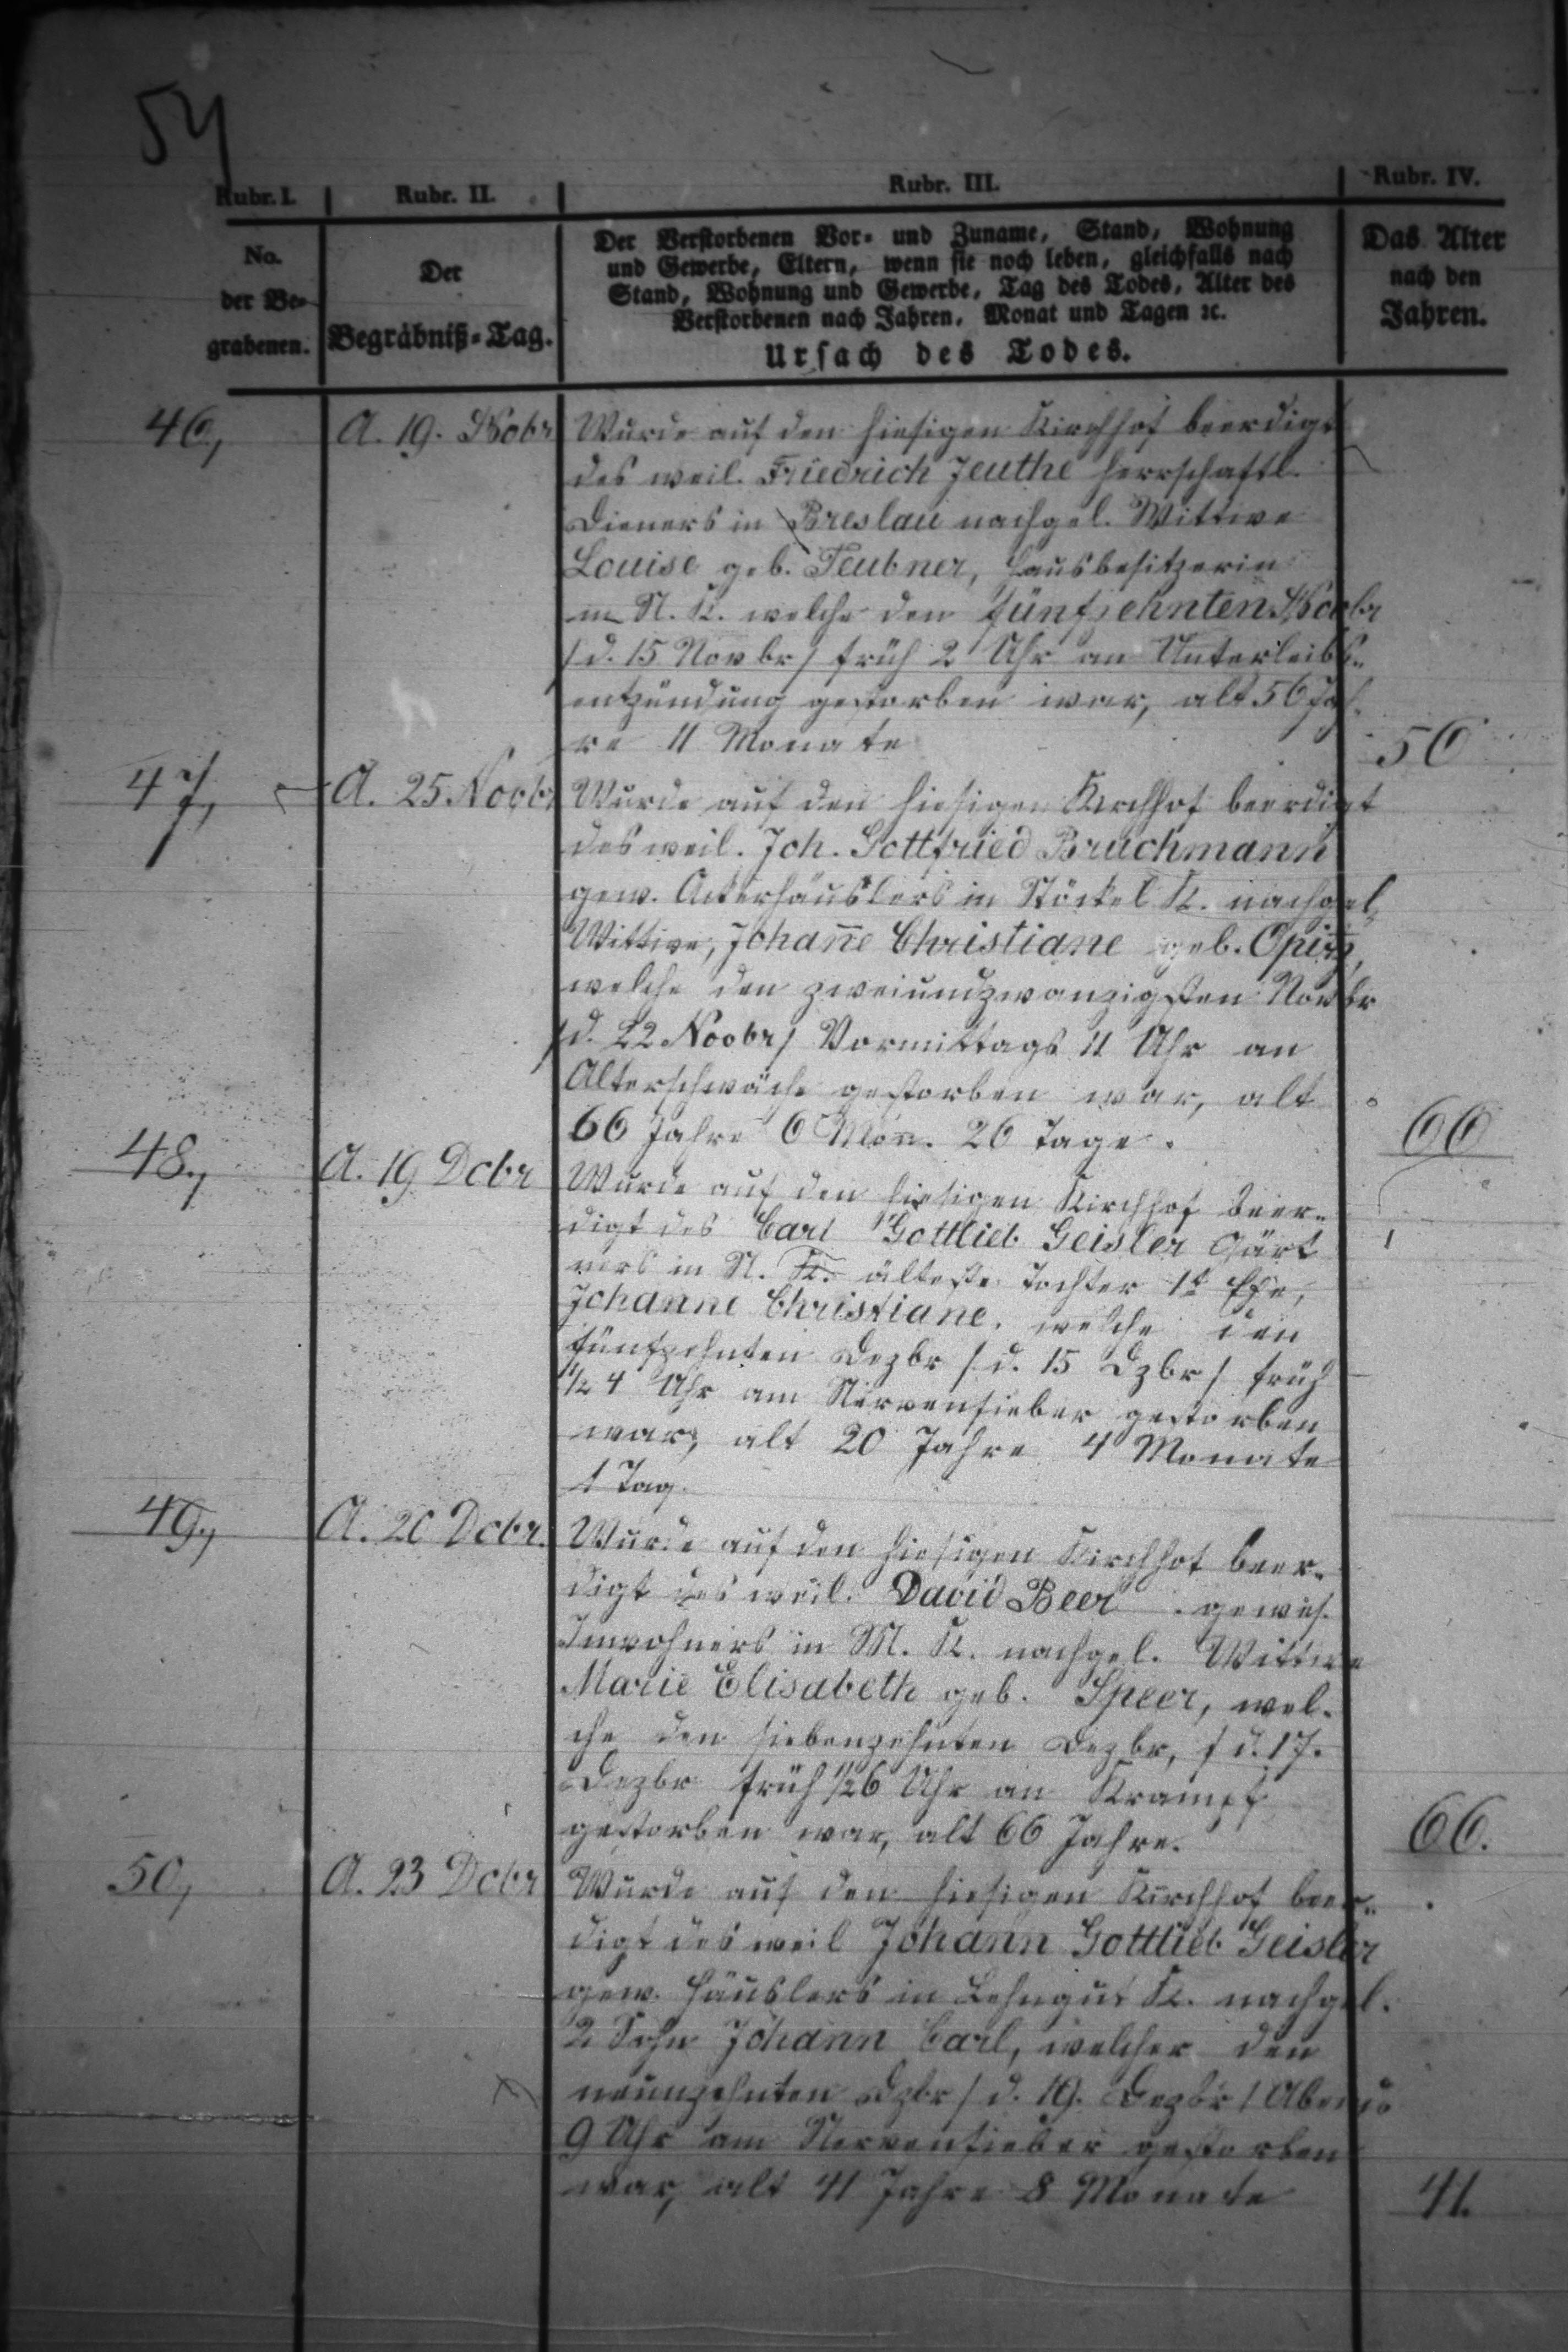 54
Rubr. I. Rubr. II. Rubr. III. Rubr. IV.
No. der Be-grabenen.
Der Begräbniß-Tag.
Der Verstorbenen Vor- und Zuname, Stand, Wohnung
und Gewerbe, Eltern, wenn sie noch leben, gleichfalls nach
Stand, Wohnung und Gewerbe, Tag des Todes, Alter des
Verstorbenen nach Jahren, Monat und Tagen ꝛc.
Ursach des Todes.
Das Alter
nach den
Jahren.
46, A. 19. Novbr Wurde auf den hiesigen Kirchhof beerdigt
des weil. Friedrich Jeuthe herrschaftl.
Dieners in Breslau nachgel. Wittwe
Louise geb. Teubner, Hausbesitzerin
in N. K. welche den fünfzehnten Novbr
/d. 15 Novbr/ früh 2 Uhr an Unterleibs-
entzündung gestorben war, alt 56 Jah-
re 11 Monate 56
47, A. 25 Novbr Wurde auf den hiesigen Kirchhof beerdigt
des weil. Joh. Gottfried Bruchmann
gew. Ackerhäuslers in Stöckel K. nachgel.
Wittwe, Johanne Christiane geb. Opitz,
welche den zweiundzwanzigsten Novbr
/d. 22 Novbr/ Vormittags 11 Uhr an
Alterschwäche gestorben war, alt
66 Jahre 6 Mon. 26 Tage. 66
48, A. 19 Dcbr Wurde auf den hiesigen Kirchhof beer-
digt des Carl Gottlieb Geisler Gärt
ners in N. K. älteste Tochter 1t Ehe,
Johanne Christiane, welche den
fünfzehnten Dezbr /d. 15 Dzbr/ früh
1/2 4 Uhr am Nervenfieber gestorben
war, alt 20 Jahre 4 Monate
1 Tag.
49, A. 20 Dcbr. Wurde auf den hiesigen Kirchhof beer-
digt des weil. David Beer gewes.
Inwohners in M. K. nachgel. Wittwe
Marie Elisabeth geb. Speer, wel-
che den siebenzehnten Dezbr, /d. 17.
Dezbr früh 1/2 6 Uhr an Krampf
gestorben war, alt 66 Jahre. 66.
50, A. 23 Dcbr Wurde auf den hiesigen Kirchhof beer-
digt des weil Johann Gottlieb Geisler
gew. Häuslers in Lehngut K. nachgel.
2 Sohn Johann Carl, welcher den
neunzehnten Dzbr /d. 19. Dezbr/ Abends
9 Uhr am Nervenfieber gestorben
war, alt 41 Jahre 8 Monate 41.